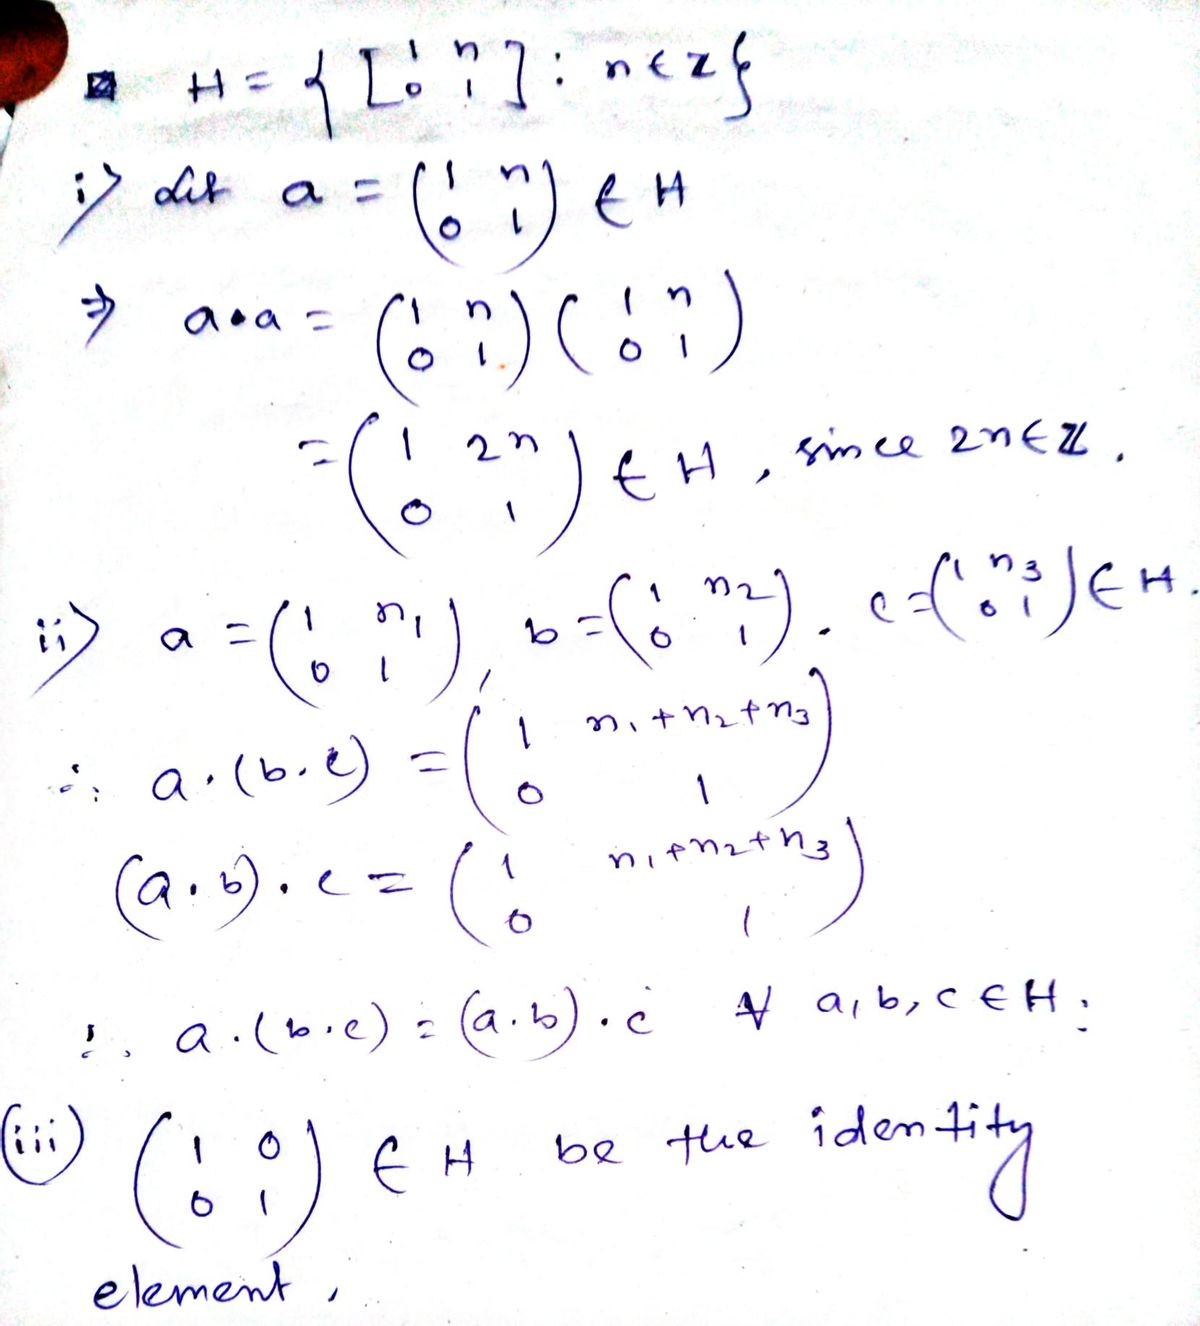 H = { [1 n; 0 1] : n ∈ Z }
i> Let a = (1 n; 0 1) ∈ H
⇒ a•a = (1 n; 0 1) (1 n; 0 1)
= (1 2n; 0 1) ∈ H, since 2n ∈ ℤ.
ii> a = (1 n₁; 0 1), b = (1 n₂; 0 1). c = (1 n₃; 0 1) ∈ H.
∴ a.(b.c) = (1 n₁+n₂+n₃; 0 1)
(a.b).c = (1 n₁+n₂+n₃; 0 1)
∴ a.(b.c) = (a.b).c ∀ a, b, c ∈ H:
(iii) (1 0; 0 1) ∈ H be the identity
element.